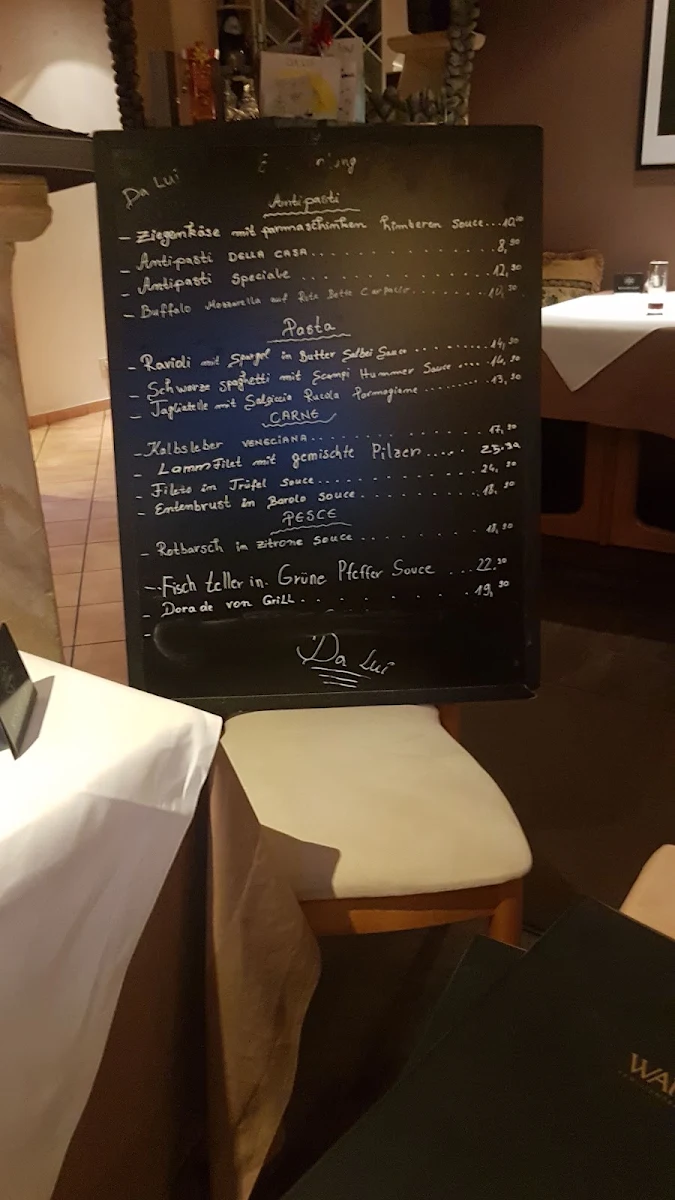 Da Lui
Antipasti
- Ziegenkäse mit parmaschinken himberen souce...10,50
- Antipasti DELLA CASA........ 8,90
- Antipasti Speciale ........ 12,90
- Buffalo Mozzarella auf Rote Bette Carpacio........
Pasta
- Ravioli mit Spargel in Butter Salbei Sauce ........ 14,90
- Schwarze spaghetti mit Scampi Hummer Sauce .... 16,90
- Tagliatelle mit Salsiccia Rucola Parmagiana ...... 13,90
CARNE
- Kalbsleber VENECIANA........ 17,90
- Lamm Filet mit gemischte Pilzen..... 25,90
- Fileto in Trüfel souce........ 24,90
- Entenbrust in Barolo souce........ 18,90
PESCE
- Rotbarsch in zitrone souce ........ 18,90
- Fisch teller in Grüne Pfeffer Souce ... 22,90
- Dorade von Grill........ 19,90
-
Da Lui